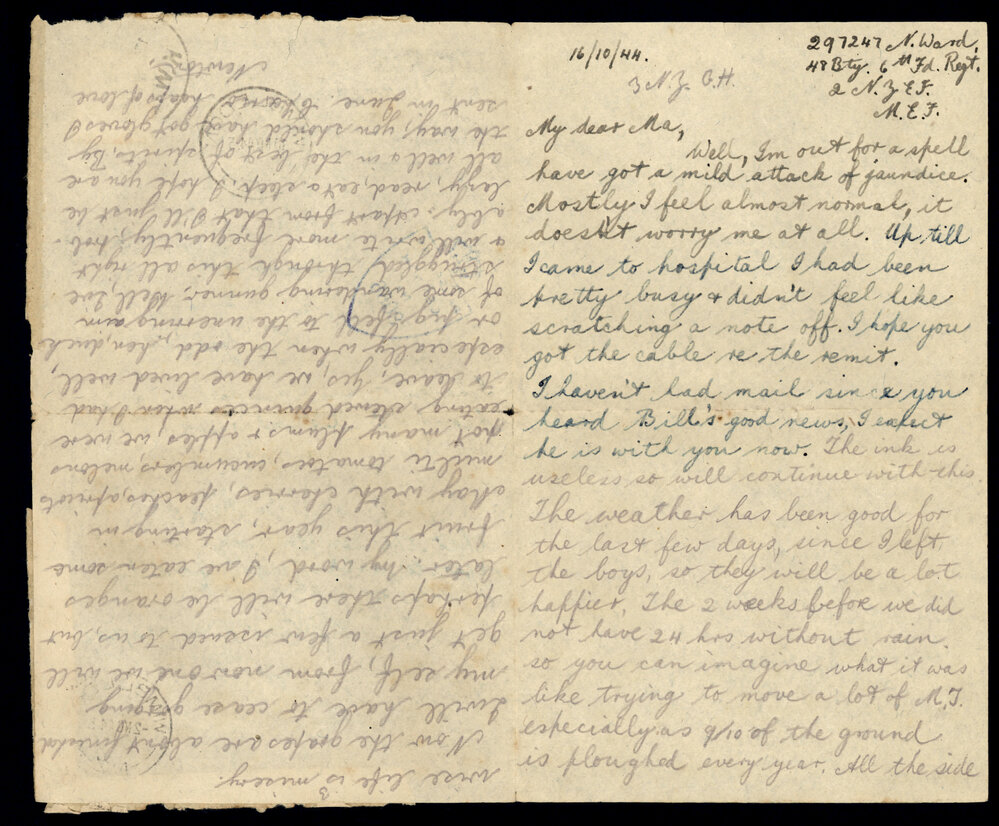 16/10/44.
297247 N. Ward,
48 Bty. 6th Fd. Regt.
2 N.Z.E.F.
M.E.F.
3 N.Z. G.H.
My dear Ma,
Well, Im out for a spell
have got a mild attack of jaundice.
Mostly I feel almost normal, it
doesn't worry me at all. Up till
I came to hospital I had been
pretty busy & didn't feel like
scratching a note off. I hope you
got the cable re the remit.
I haven't had mail since you
heard Bill's good news, I expect
he is with you now. The ink is
useless, so will continue with this.
The weather has been good for
the last few days, since I left
the boys, so they will be a lot
happier. The 2 weeks before we did
not have 24 hrs without rain
so you can imagine what it was
like trying to move a lot of M.T.
especially as 9/10 of the ground
is ploughed every year. All the side
3
wise life is misery.
Now the grapes are about finished
I will have to cease gorging
my self, from now one we will
get just a few issued to us, but
perhaps there will be oranges
later. My word, I ave eaten some
fruit this year, starting in
May with cherries, peaches, apricots
multi tomatoes, cucumbers, melons
not many plums & apples, we were
eating stewed quinces when I had
to leave, yes, we have lived well,
especially when the odd, hen, duck
or pig fell to the unerring aim
of some wandering gunner. Well, Ive
struggled through this all right
& will write more frequently, prob-
ably, apart from that I'll just be
lazy, read, eat & sleep. I hope you are
all well & in the best of spirits. By
the way, you should have got gloves
sent in June. Cheerio heaps of love
Newton